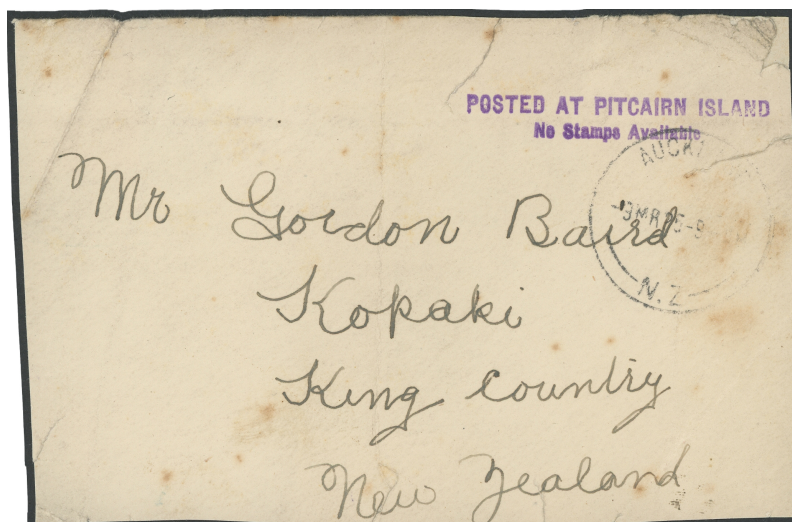 POSTED AT PITCAIRN ISLAND
No Stamps Available
AUCKL
Mr Gordon Baird
N.Z
Kopaki
King Country
New Zealand